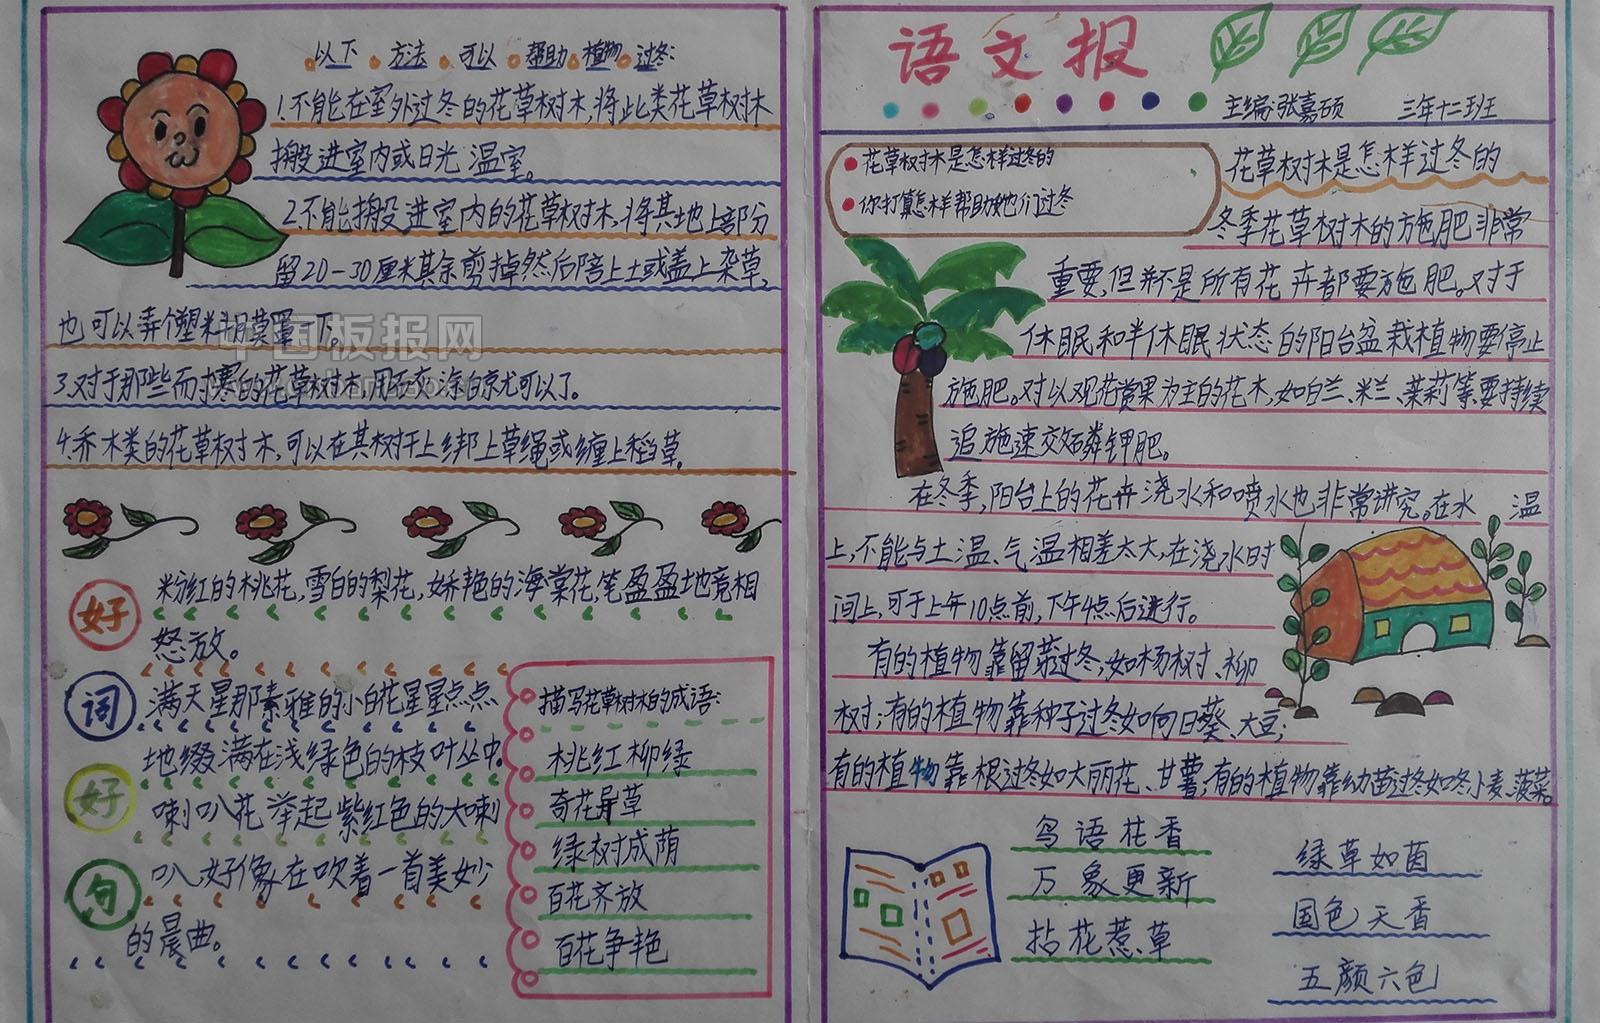 以下方法可以帮助植物过冬:
1.不能在室外过冬的花草树木,将此类花草树木
搬进室内或日光温室。
2.不能搬进室内的花草树木,将其地上部分
留20-30厘米其余剪掉然后陪上土或盖上杂草,
也可以弄个塑料胡莫罩一下。
中国板报网
3.对于那些而寸寒的花草树木,用石灰涂白就可以了。
4.乔木类的花草树木,可以在其树干上绑上草绳或缠上稻草。
好词好句
粉红的桃花,雪白的梨花,娇艳的海棠花,笔盈盈地竟相
怒放。
满天星那素雅的小白花星星点点
地缀满在浅绿色的枝叶丛中。
喇叭花举起紫红色的大喇
叭好像在吹着一首美妙
的晨曲。
描写花草树木的成语:
桃红柳绿
奇花异草
绿树成荫
百花齐放
百花争艳
语文报
主编:张嘉硕 三年十二班
花草树木是怎样过冬的
你打算怎样帮助她们过冬
花草树木是怎样过冬的
冬季花草树木的施肥非常
重要,但并不是所有花卉都要施肥。对于
休眠和半休眠状态的阳台盆栽植物要停止
施肥。对以观花赏果为主的花木,如白兰、米兰、茉莉等,要持续
追施速效磷钾肥。
在冬季,阳台上的花卉浇水和喷水也非常讲究。在水温
上,不能与土温、气温相差太大,在浇水时
间上,可于上午10点前,下午4点后进行。
有的植物靠留芽过冬,如杨树、柳
树;有的植物靠种子过冬如向日葵、大豆;
有的植物靠根过冬如大丽花、甘薯;有的植物靠幼苗过冬如冬小麦、菠菜。
鸟语花香
万象更新
拈花惹草
绿草如茵
国色天香
五颜六色